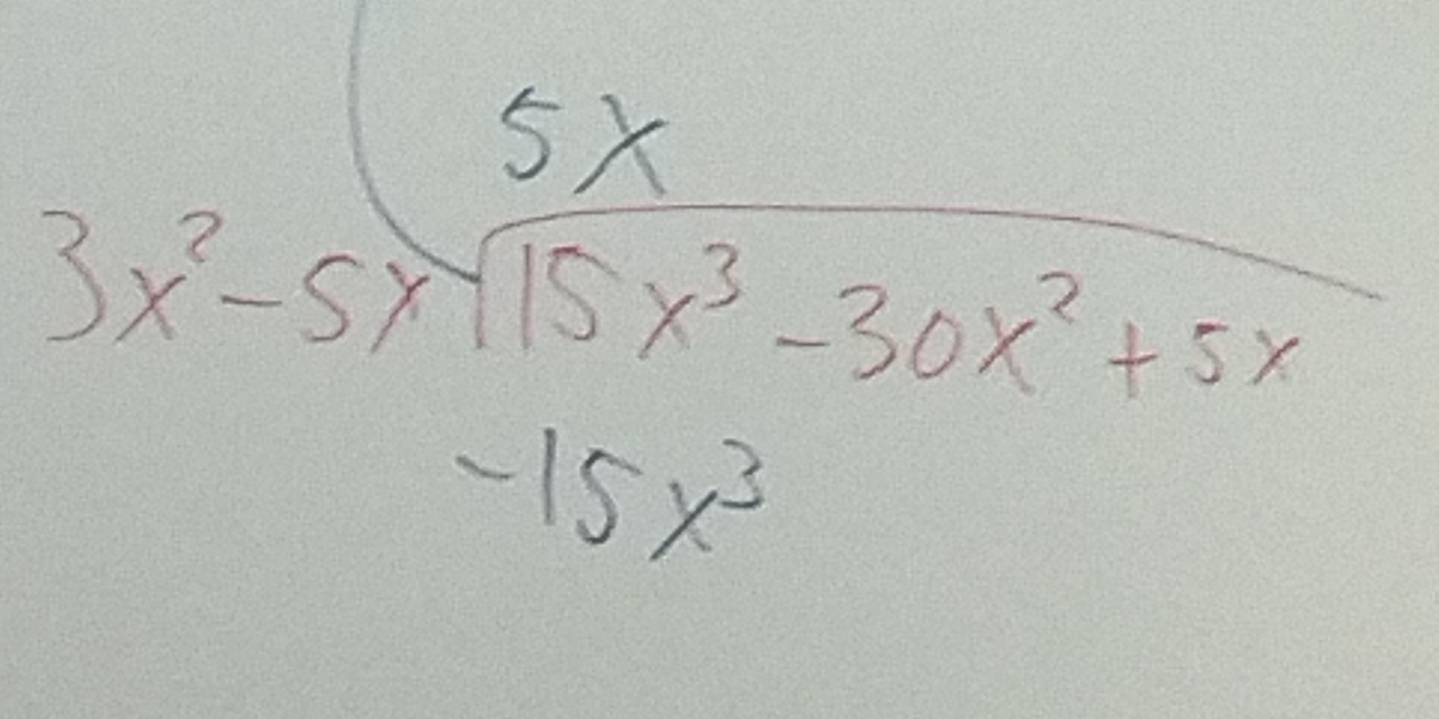 5x
3x²-5x 15x³-30x²+5x
-15x³